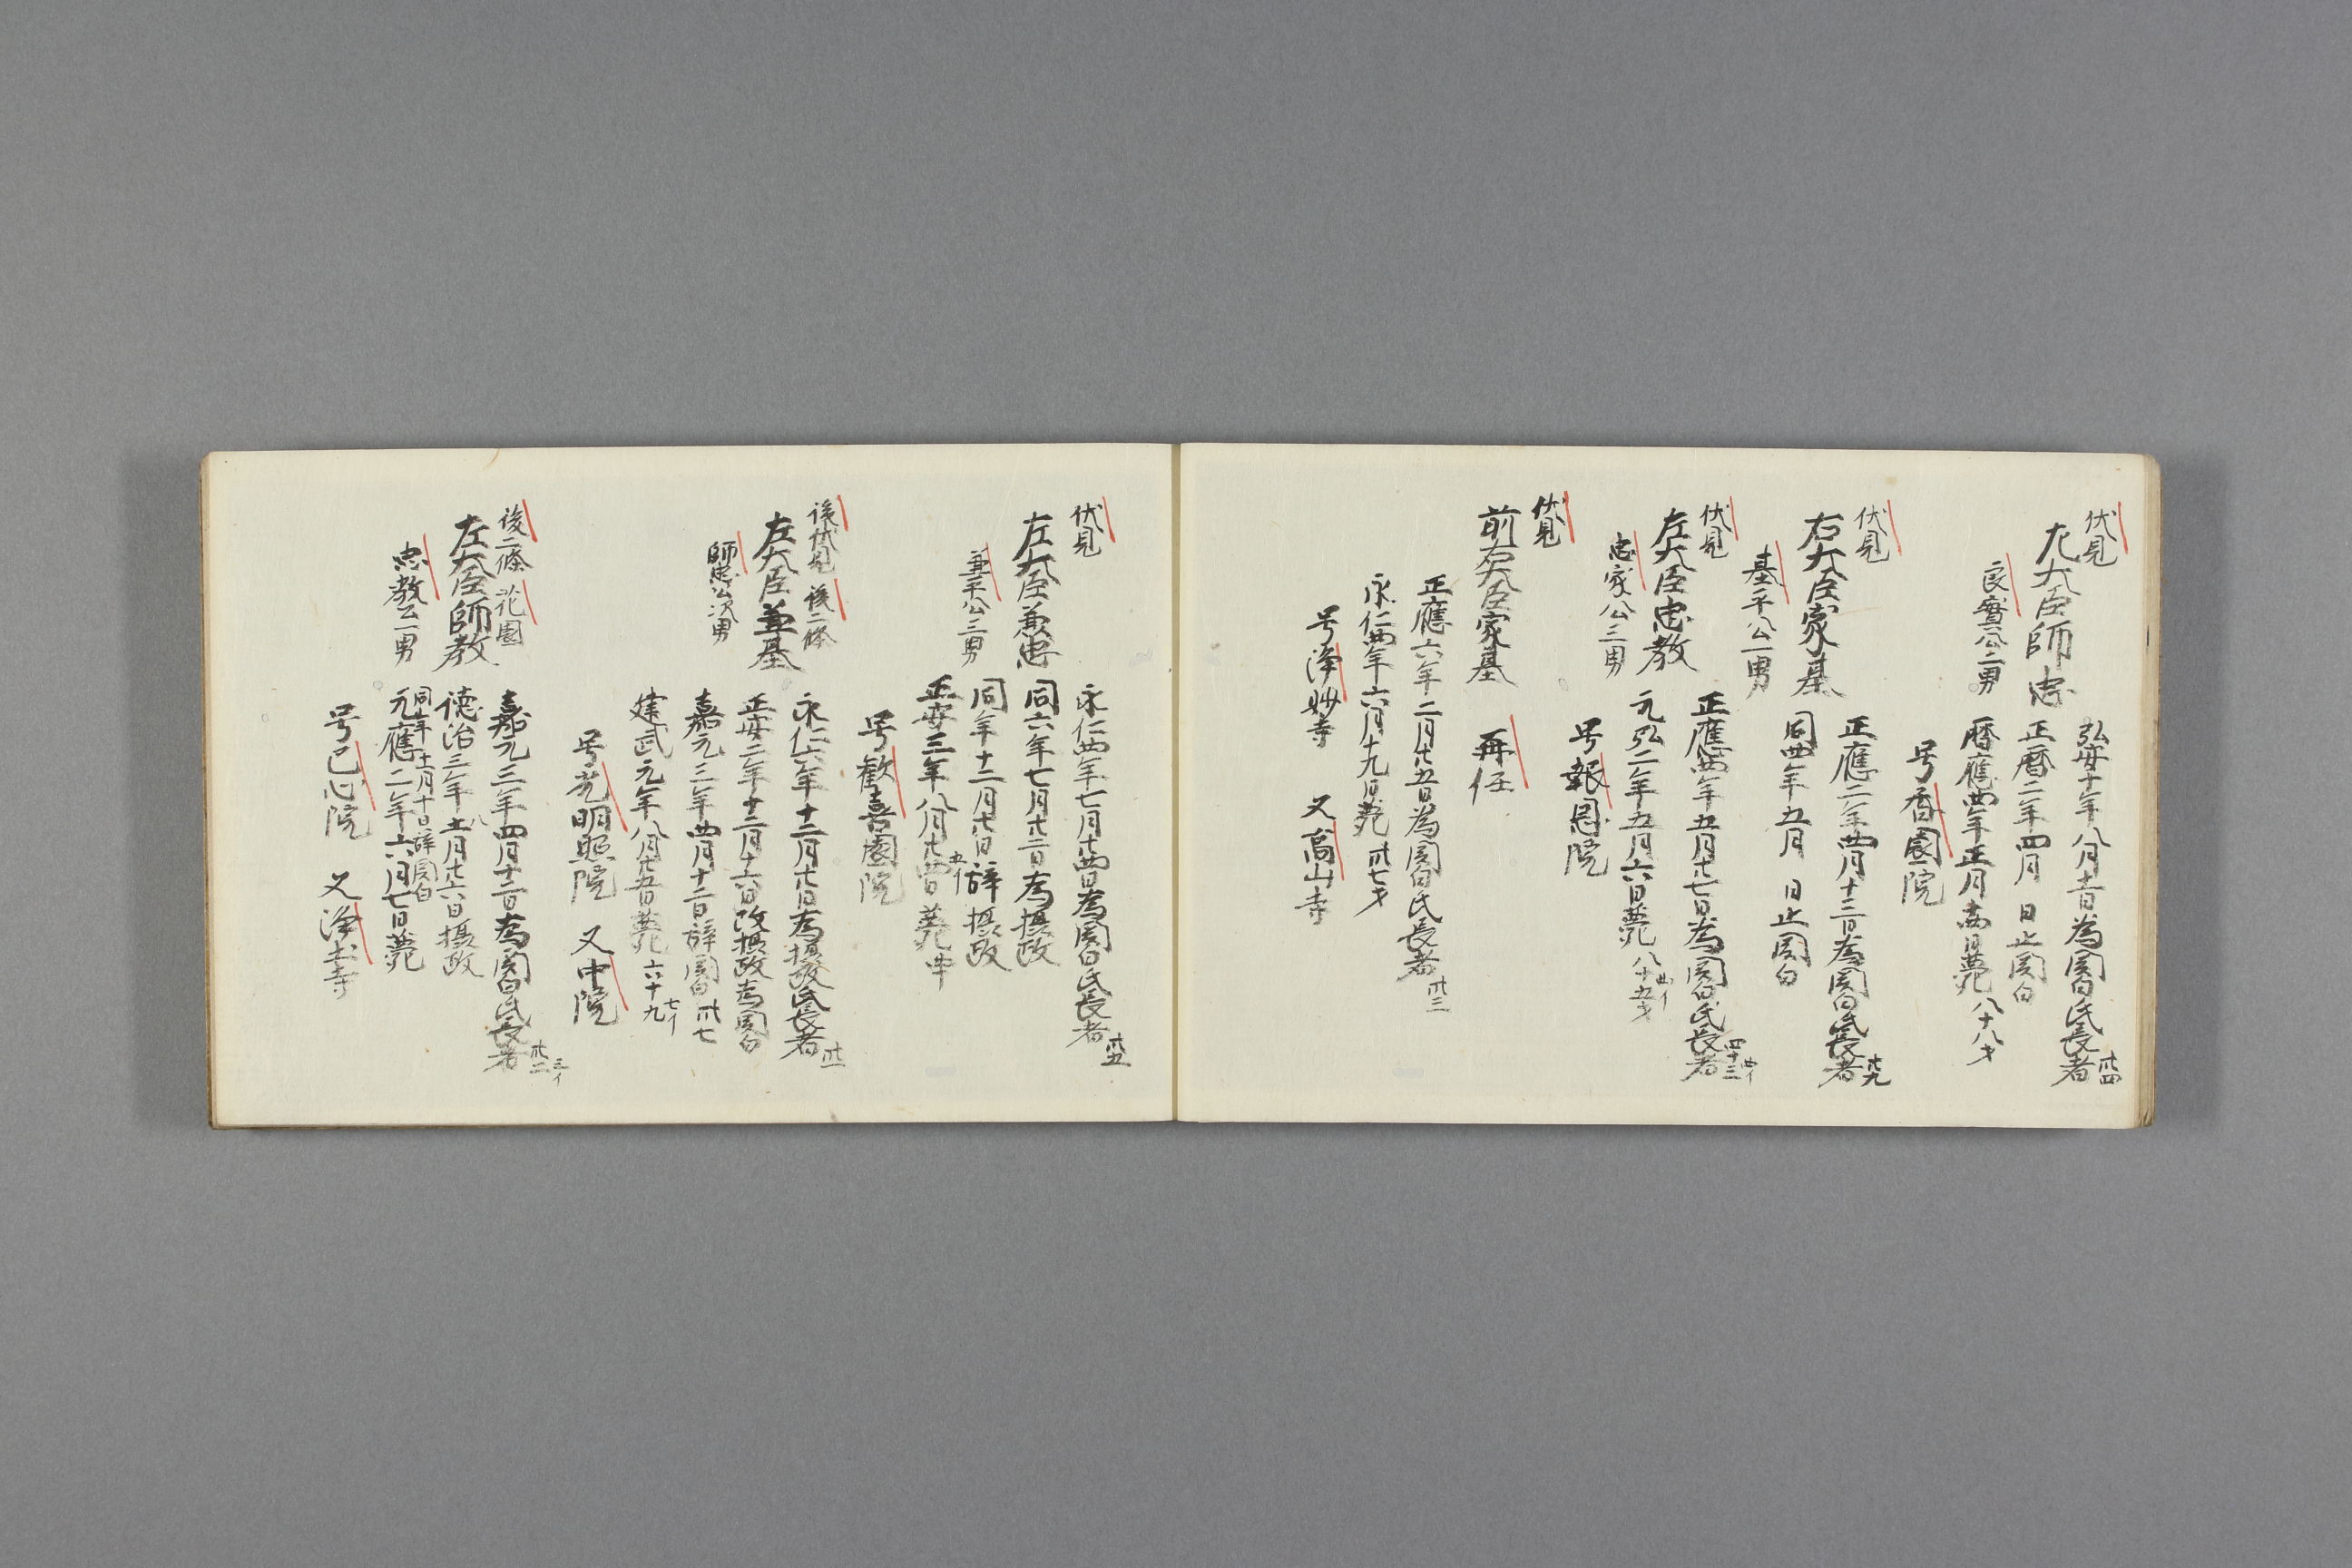 伏見
左大臣師忠
良實公二男
弘安十年八月十一日為関白氏長者 卅四
正暦二年四月 日止関白
暦應四年正月十四日薨 八十八才
号香園院
伏見
右大臣家基
基平公一男
正應二年四月十三日為関白氏長者 廿九
同四年五月 日止関白
伏見
左大臣忠教
忠家公三男
正應四年五月廿七日為関白氏長者 四十三 四イ
元弘二年五月六日薨 八十五才 四イ
号報恩院
伏見
前右大臣家基 再任
正應六年二月廿五日為関白氏長者 卅三
永仁四年六月十九日薨 卅七才
号浄妙寺 又高山寺
伏見
左大臣兼忠
兼平公三男
永仁四年七月廿四日為関白氏長者 卅五
同六年七月廿二日為摂政
同年十二月廿日辞摂政
正安三年八月廿四日薨 五イ 卌
号歓喜園院
後伏見 後二條
左大臣兼基
師忠公次男
永仁六年十二月廿日為摂政氏長者 卅一
正安二年十二月十六日改摂政為関白
嘉元三年四月十二日辞関白 卅七
建武元年八月廿五日薨 六十九 七イ
号光明照院 又中院
後二條 花園
左大臣師教
忠教公一男
嘉元三年四月十二日為関白氏長者 卅二 三イ
徳治三年十一月廿六日摂政 八
同十一年十一月十日辞関白
元應二年六月七日薨
号己心院 又浄土寺